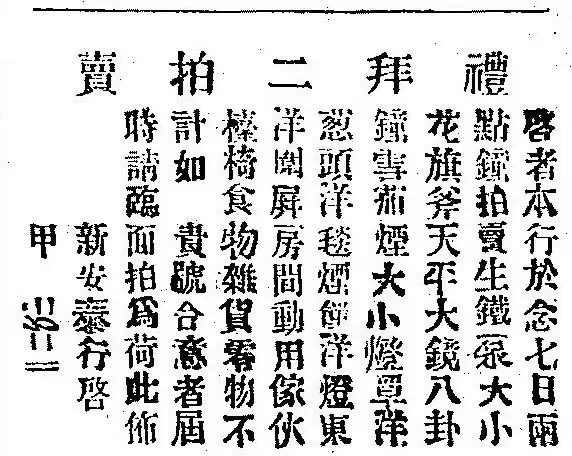 禮拜二拍賣
啓者本行於念七日兩
點鐘拍賣生鐵泵大小
花旗斧天平大鏡八卦
鐘雪茄煙大小燈罩洋
葱頭洋毯煙餅洋燈東
洋圍屏房間動用傢伙
椅食物雜貨零物不
計如 貴號合意者屆
時請臨而拍爲荷此佈
新安泰行啓
甲